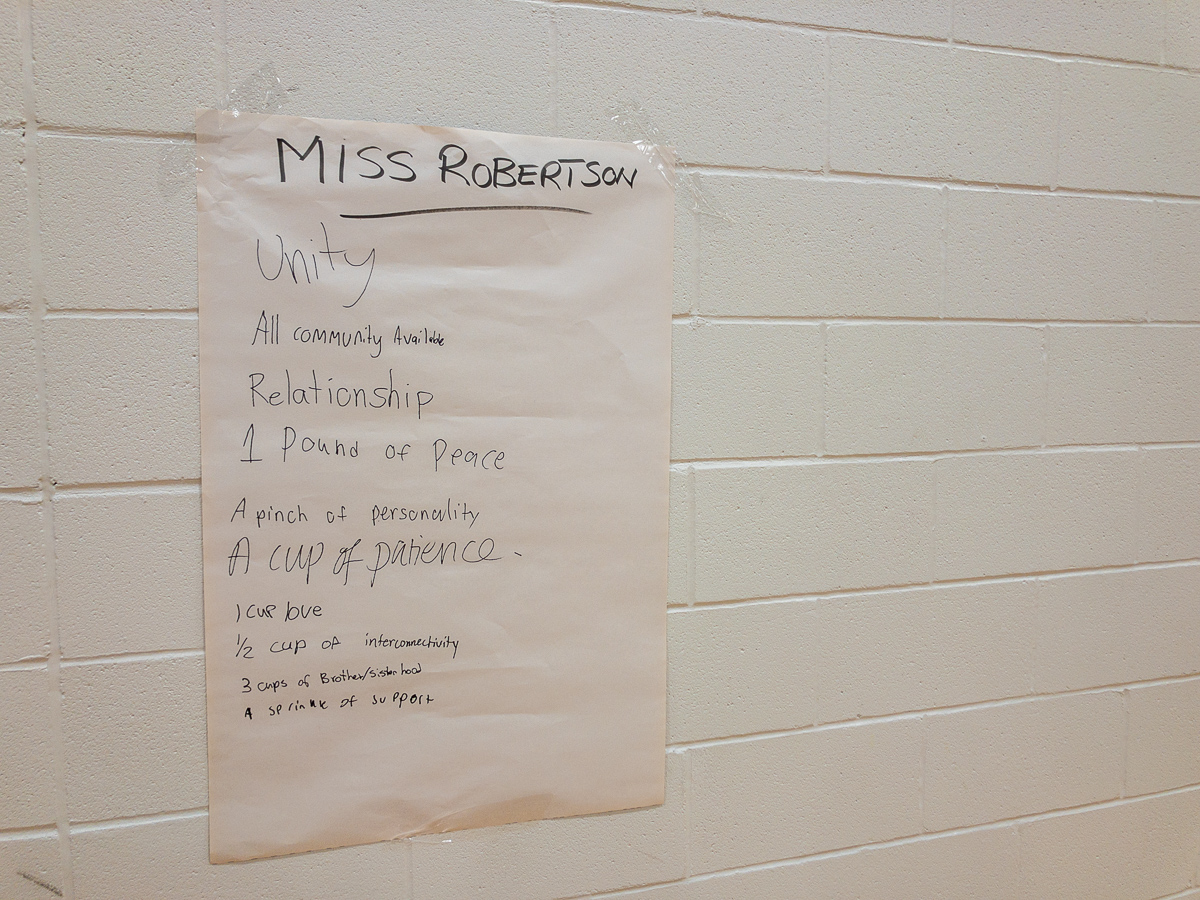 MISS ROBERTSON
Unity
All community Available
Relationship
1 Pound of Peace
A pinch of personality
A cup of patience.
1 cup love
1/2 cup of interconnectivity
3 cups of Brother/Sisterhood
A sprinkle of support